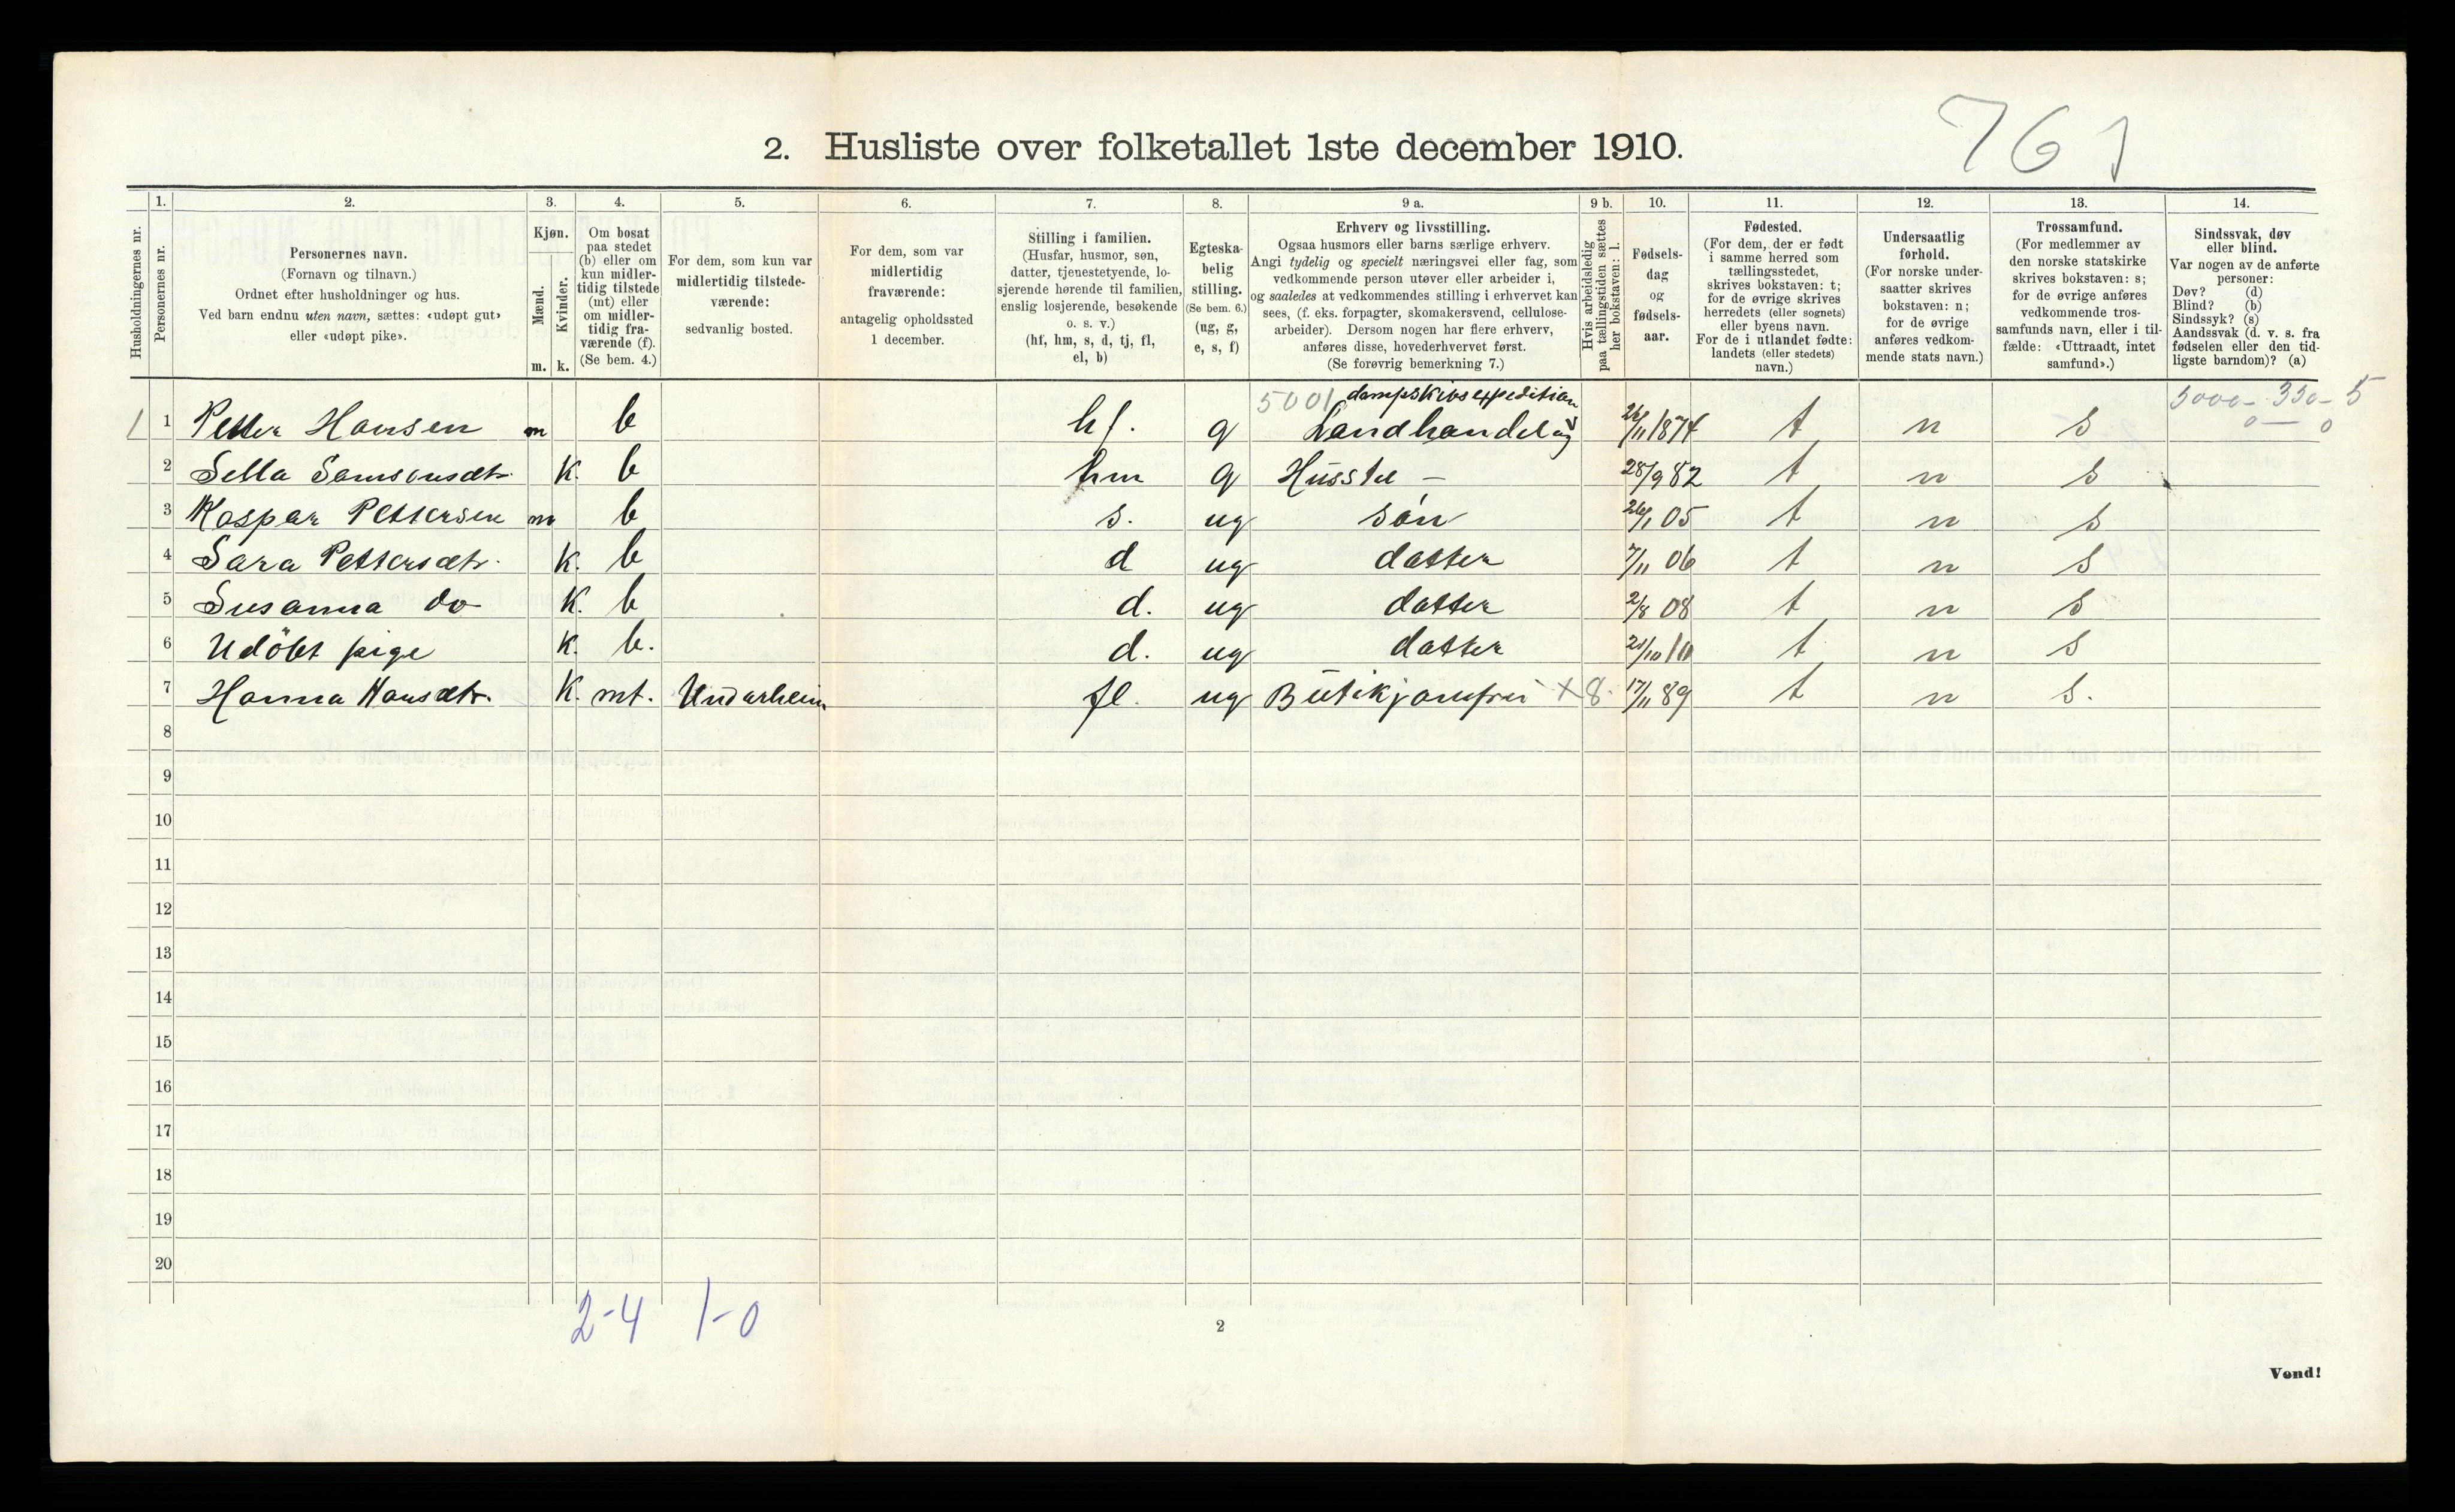 761
2. Husliste over folketallet 1ste december 1910.
Husholdningernes nr.
1.
Personernes nr.
2.
Personernes navn.
(Fornavn og tilnavn.)
Ordnet efter husholdninger og hus.
Ved barn endnu uten navn, sættes: «udøpt gut»
eller «udøpt pike».
3.
Kjøn.
Mænd.
Kvinder.
m. k.
4.
Om bosat
paa stedet
(b) eller om
kun midler-
tidig tilstede
(mt) eller
om midler-
tidig fra-
værende (f).
(Se bem. 4.)
5.
For dem, som kun var
midlertidig tilstede-
værende:
sedvanlig bosted.
6.
For dem, som var
midlertidig
fraværende:
antagelig opholdssted
1 december.
7.
Stilling i familien.
(Husfar, husmor, søn,
datter, tjenestetyende, lo-
sjerende hørende til familien,
enslig losjerende, besøkende
o. s. v.)
(hf, hm, s, d, tj, fl,
el, b)
8.
Egteska-
belig
stilling.
(Se bem. 6.)
(ug, g,
e, s, f)
9 a.
Erhverv og livsstilling.
Ogsaa husmors eller barns særlige erhverv.
Angi tydelig og specielt næringsvei eller fag, som
vedkommende person utøver eller arbeider i,
og saaledes at vedkommendes stilling i erhvervet kan
sees, (f. eks. forpagter, skomakersvend, cellulose-
arbeider). Dersom nogen har flere erhverv,
anføres disse, hovederhvervet først.
(Se forøvrig bemerkning 7.)
9 b.
Hvis arbeidsledig
paa tællingstiden sættes
her bokstaven: l.
10.
Fødsels-
dag
og
fødsels-
aar.
11.
Fødested.
(For dem, der er født
i samme herred som
tællingsstedet,
skrives bokstaven: t;
for de øvrige skrives
herredets (eller sognets)
eller byens navn.
For de i utlandet fødte:
landets (eller stedets)
navn.)
12.
Undersaatlig
forhold.
(For norske under-
saatter skrives
bokstaven: n;
for de øvrige
anføres vedkom-
mende stats navn.)
13.
Trossamfund.
(For medlemmer av
den norske statskirke
skrives bokstaven: s;
for de øvrige anføres
vedkommende tros-
samfunds navn, eller i til-
fælde: «Uttraadt, intet
samfund».)
14.
Sindssvak, døv
eller blind.
Var nogen av de anførte
personer:
Døv? (d)
Blind? (b)
Sindssyk? (s)
Aandssvak (d. v. s. fra
fødselen eller den tid-
ligste barndom)? (a)
5001 dampskibsexpedition 5000 - 350 - 5
1 1 Petter Hansen m b hf. g Landhandel og 26/11 1874 t n s 0 — 0
2 Sella Samsonsdtr. K. b hm g Husstel — 28/9 82 t n s
3 Kaspar Pettersen m b s. ug sön 26/1 05 t n s
4 Sara Pettersdtr. K. b d ug datter 7/11 06 t n s
5 Susanna do K. b d. ug datter 2/8 08 t n s
6 Udöbt pige K. b. d. ug datter 21/10 10 t n s
7 Hanna Hansdtr. K. mt. Undarheim fl. ug Butikjomfru × 8. 17/11 89 t n s.
8
9
10
11
12
13
14
15
16
17
18
19
20
2-4 1-0
2
Vend!